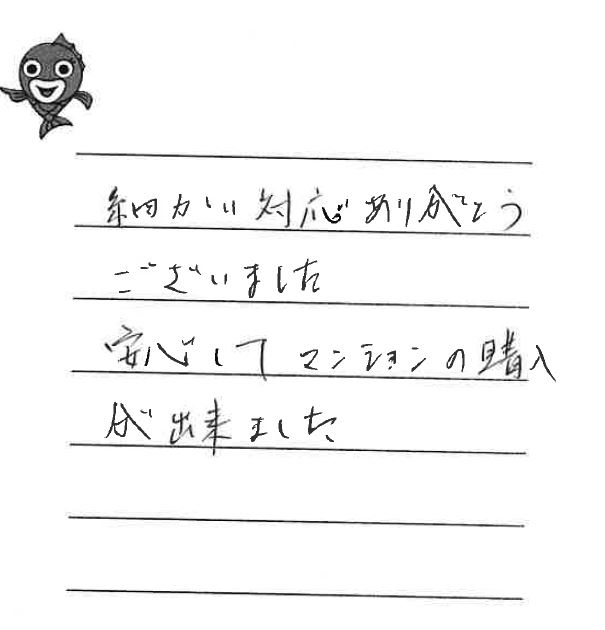 細かい対応ありがとう
ございました
安心してマンションの購入
が出来ました